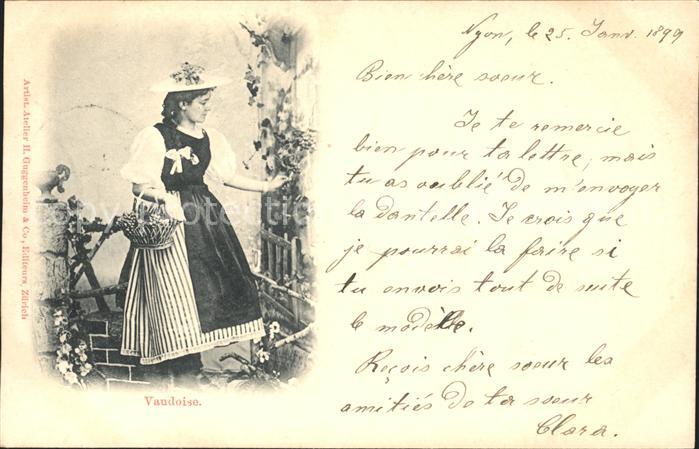 Nyon, le 25. Janv. 1899
Bien chère soeur.
Je te remercie
bien pour ta lettre, mais
tu as oublié de m'envoyer
la dantelle. Je crois que
je pourrai la faire si
tu envois tout de suite
le modèle.
Reçois chère soeur les
amitiés de ta soeur
Clara.
Artist. Atelier H. Guggenheim & Co., Editeurs, Zürich
Vaudoise.